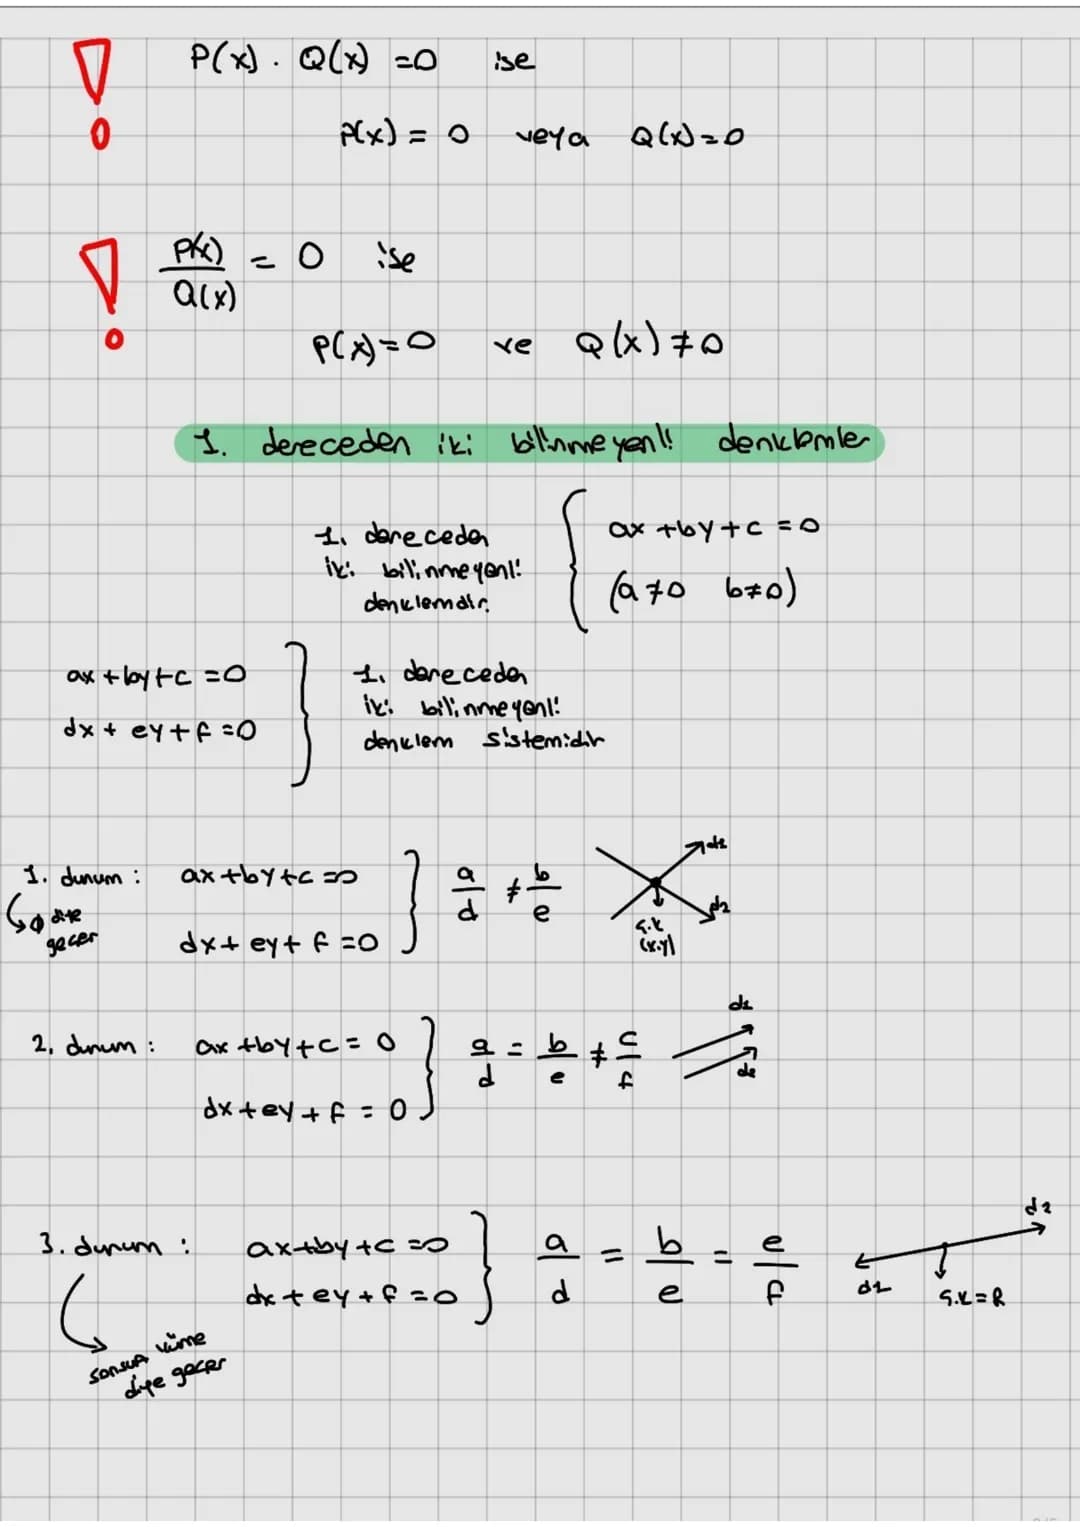 P(x) . Q(x) = 0 ise
P(x) = 0 veya Q(x) = 0
P(x)/Q(x) = 0 ise
P(x) = 0 ve Q(x) ≠ 0
1. dereceden iki bilinmeyenli denklemler
1. dereceden
iki bilinmeyenli
denklemdir.
ax + by + c = 0
(a ≠ 0 b ≠ 0)
ax + by + c = 0
dx + ey + f = 0
1. dereceden
iki bilinmeyenli
denklem sistemidir
1. durum : ax + by + c = 0
dx + ey + f = 0
a/d ≠ b/e
diye
geçer
d1
d2
ç.k
(x.y)
2. durum : ax + by + c = 0
dx + ey + f = 0
a/d = b/e ≠ c/f
d1
d2
3. durum : ax + by + c = 0
dx + ey + f = 0
a/d = b/e = e/f
d2
d1
ç.k = R
sonsuz küme
diye geçer